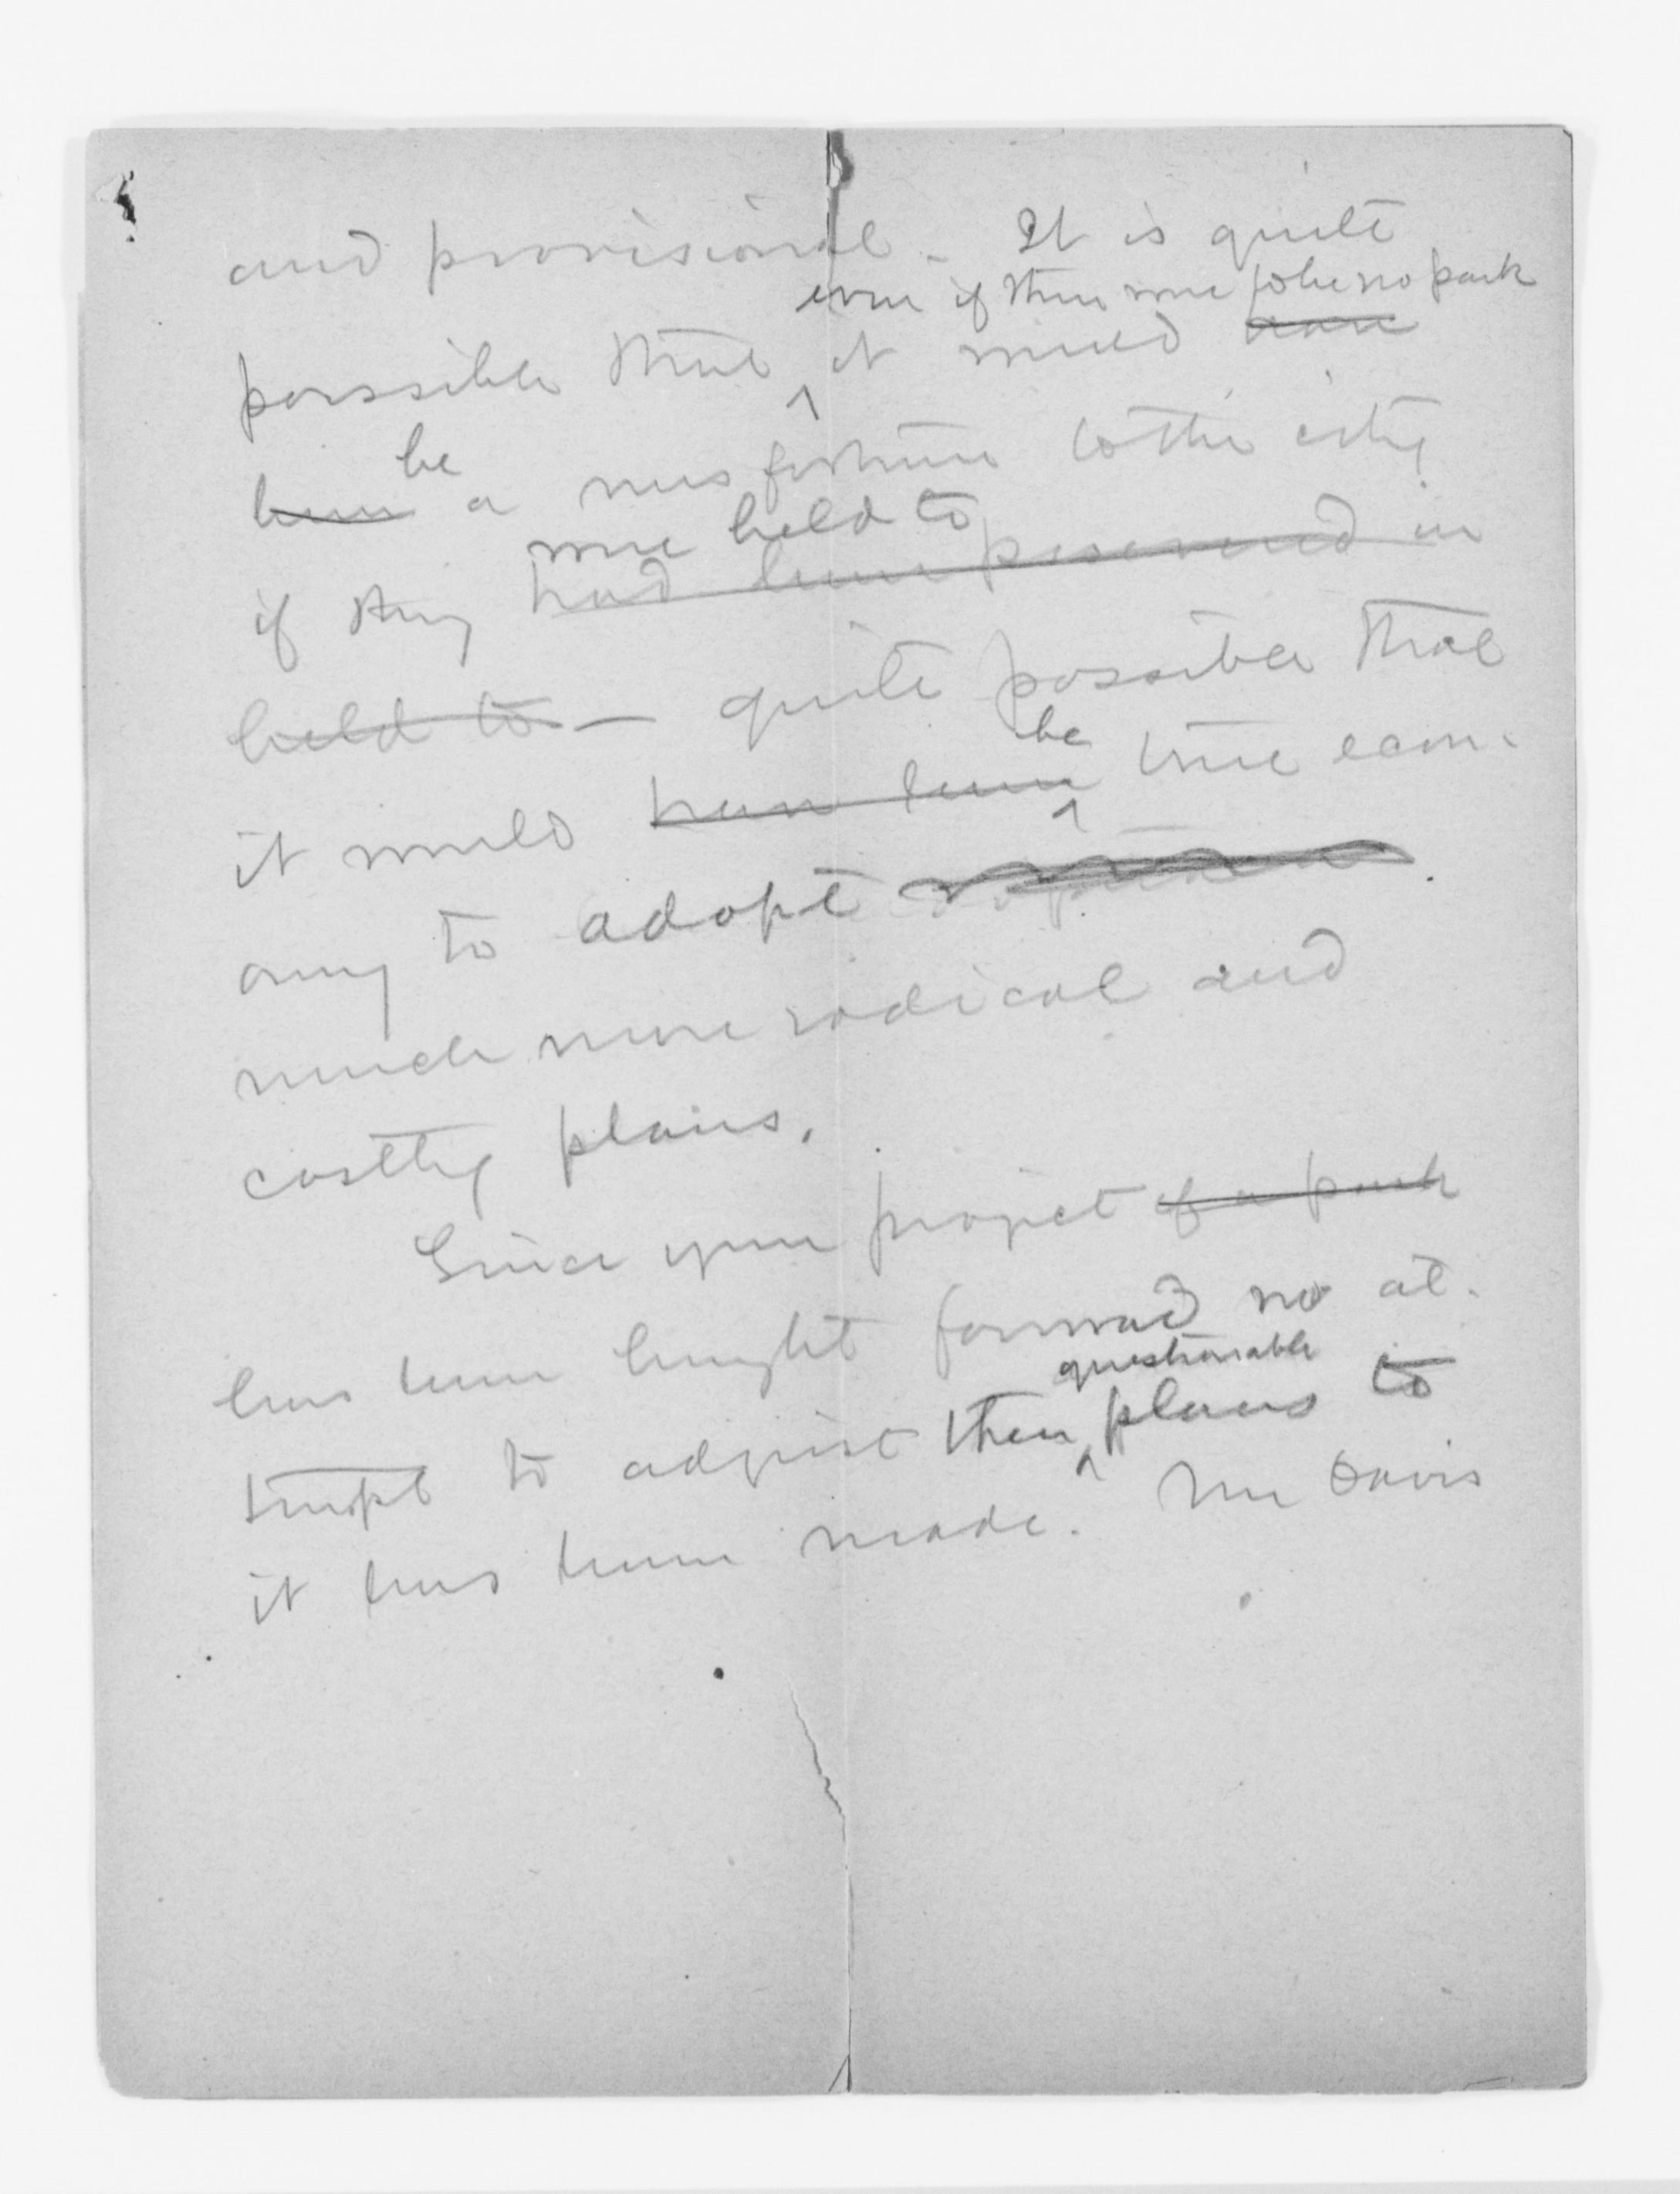 and provisional - It is quite
even if there were to be no park
possible that it would have
be
been a misfortune to the city
were held to
if they had been persevered in
held to - quite possible that
be
it would have been true econ-
omy to adopt
much more radical and
costly plans.
Since your project of a park
has been brought forward no at-
questionable
tempt to adjust these plans to
it has been made. Mr Davis